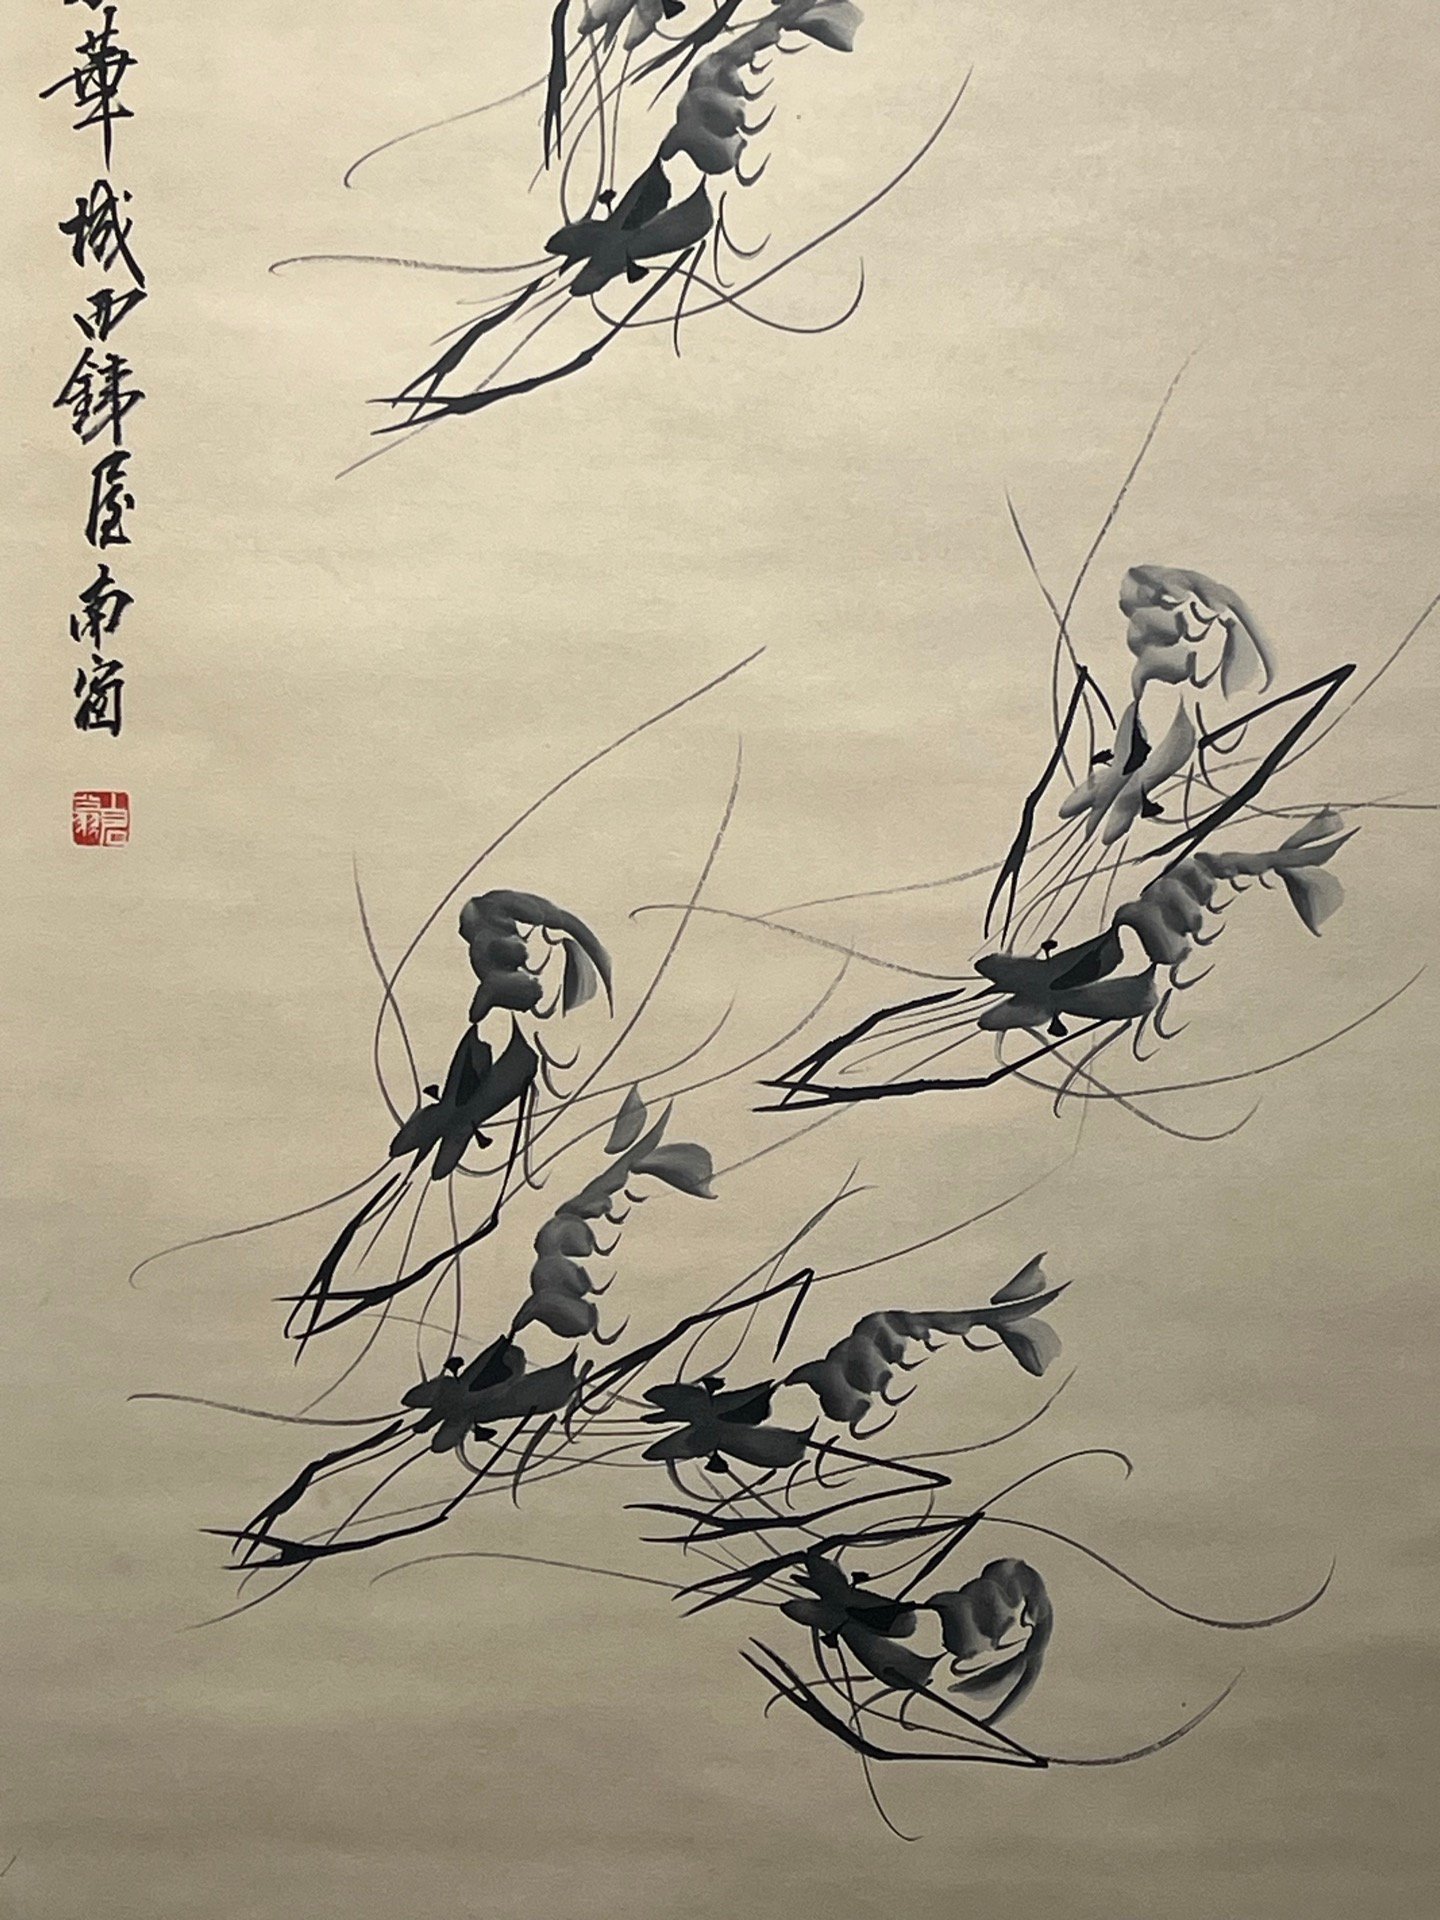 華城西銕屋南窗